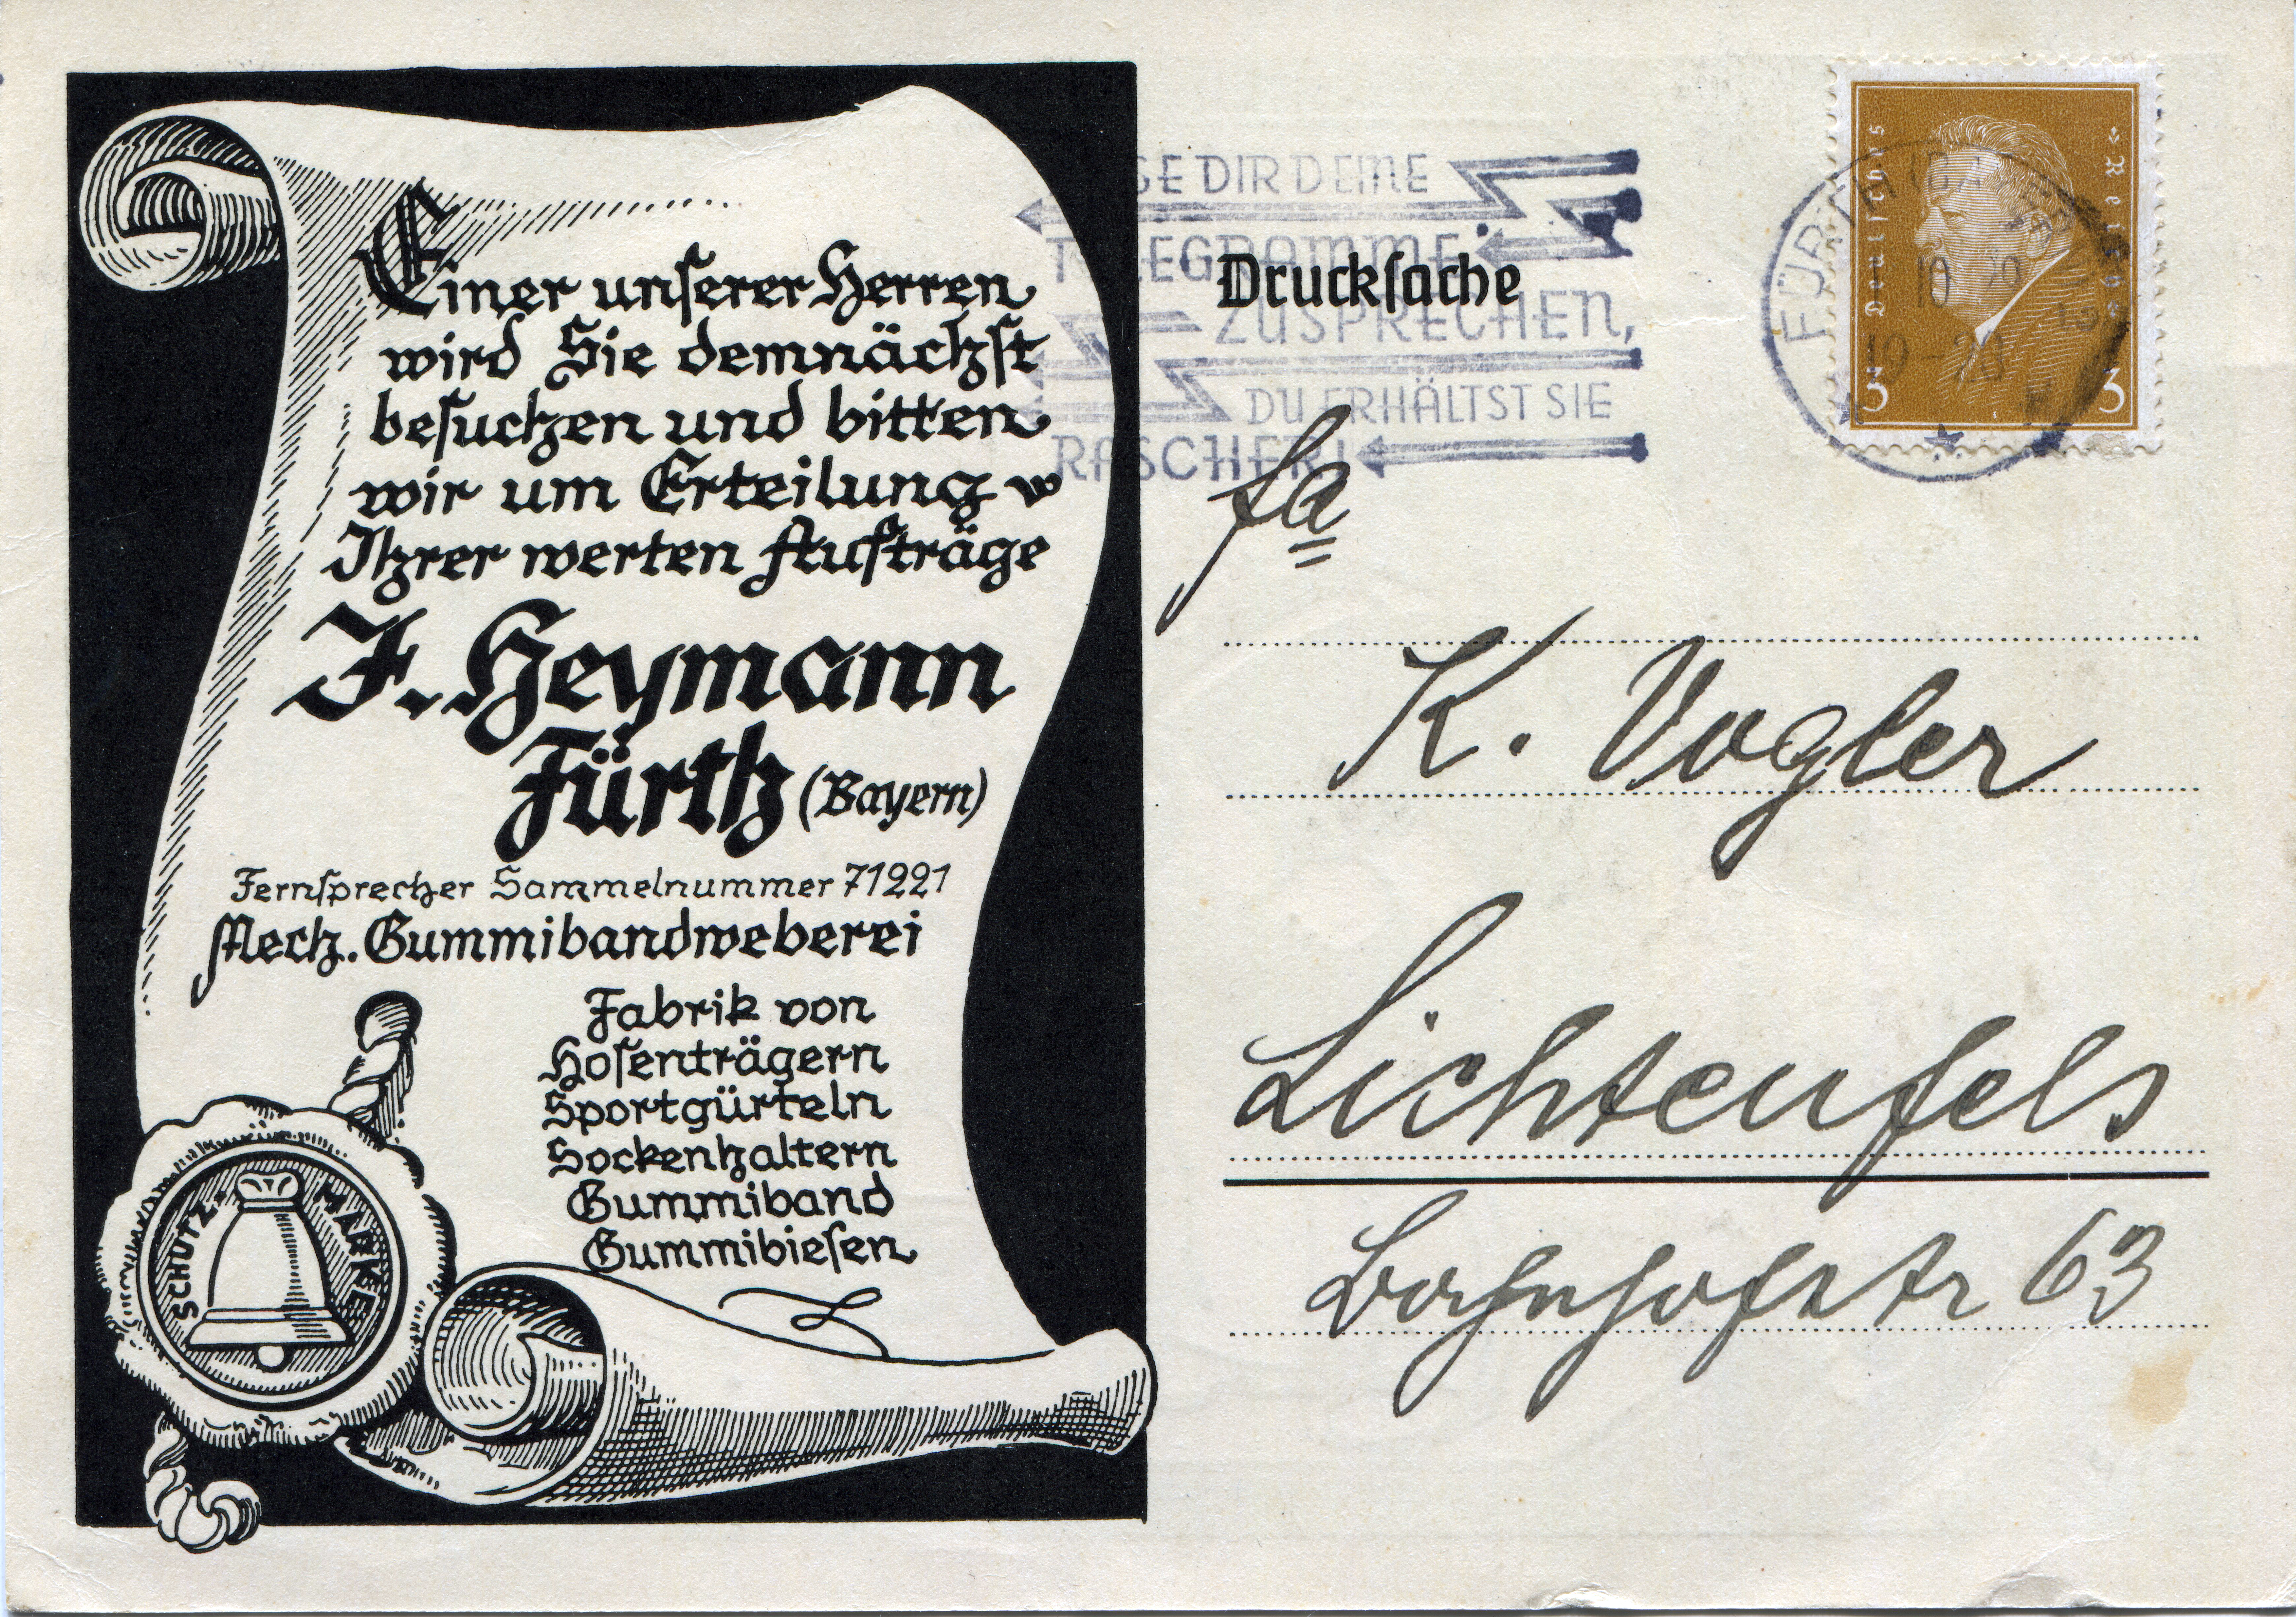 Einer unserer Herren
wird Sie demnächst
besuchen und bitten
wir um Erteilung
Ihrer werten Aufträge
J. Heymann
Fürth (Bayern)
Fernsprecher Sammelnummer 71221
Mech. Gummibandweberei
Fabrik von
Hosenträgern
Sportgürteln
Sockenhaltern
Gummiband
Gummibiesen
SCHUTZ-MARKE
DIR DEINE
TELEGRAMME
ZUSPRECHEN,
DU ERHÄLTST SIE
RASCHER!
Drucksache
Deutsches Reich
3 3
FÜRTH
Fa
K. Vogler
Lichtenfels
Bahnhofstr 63